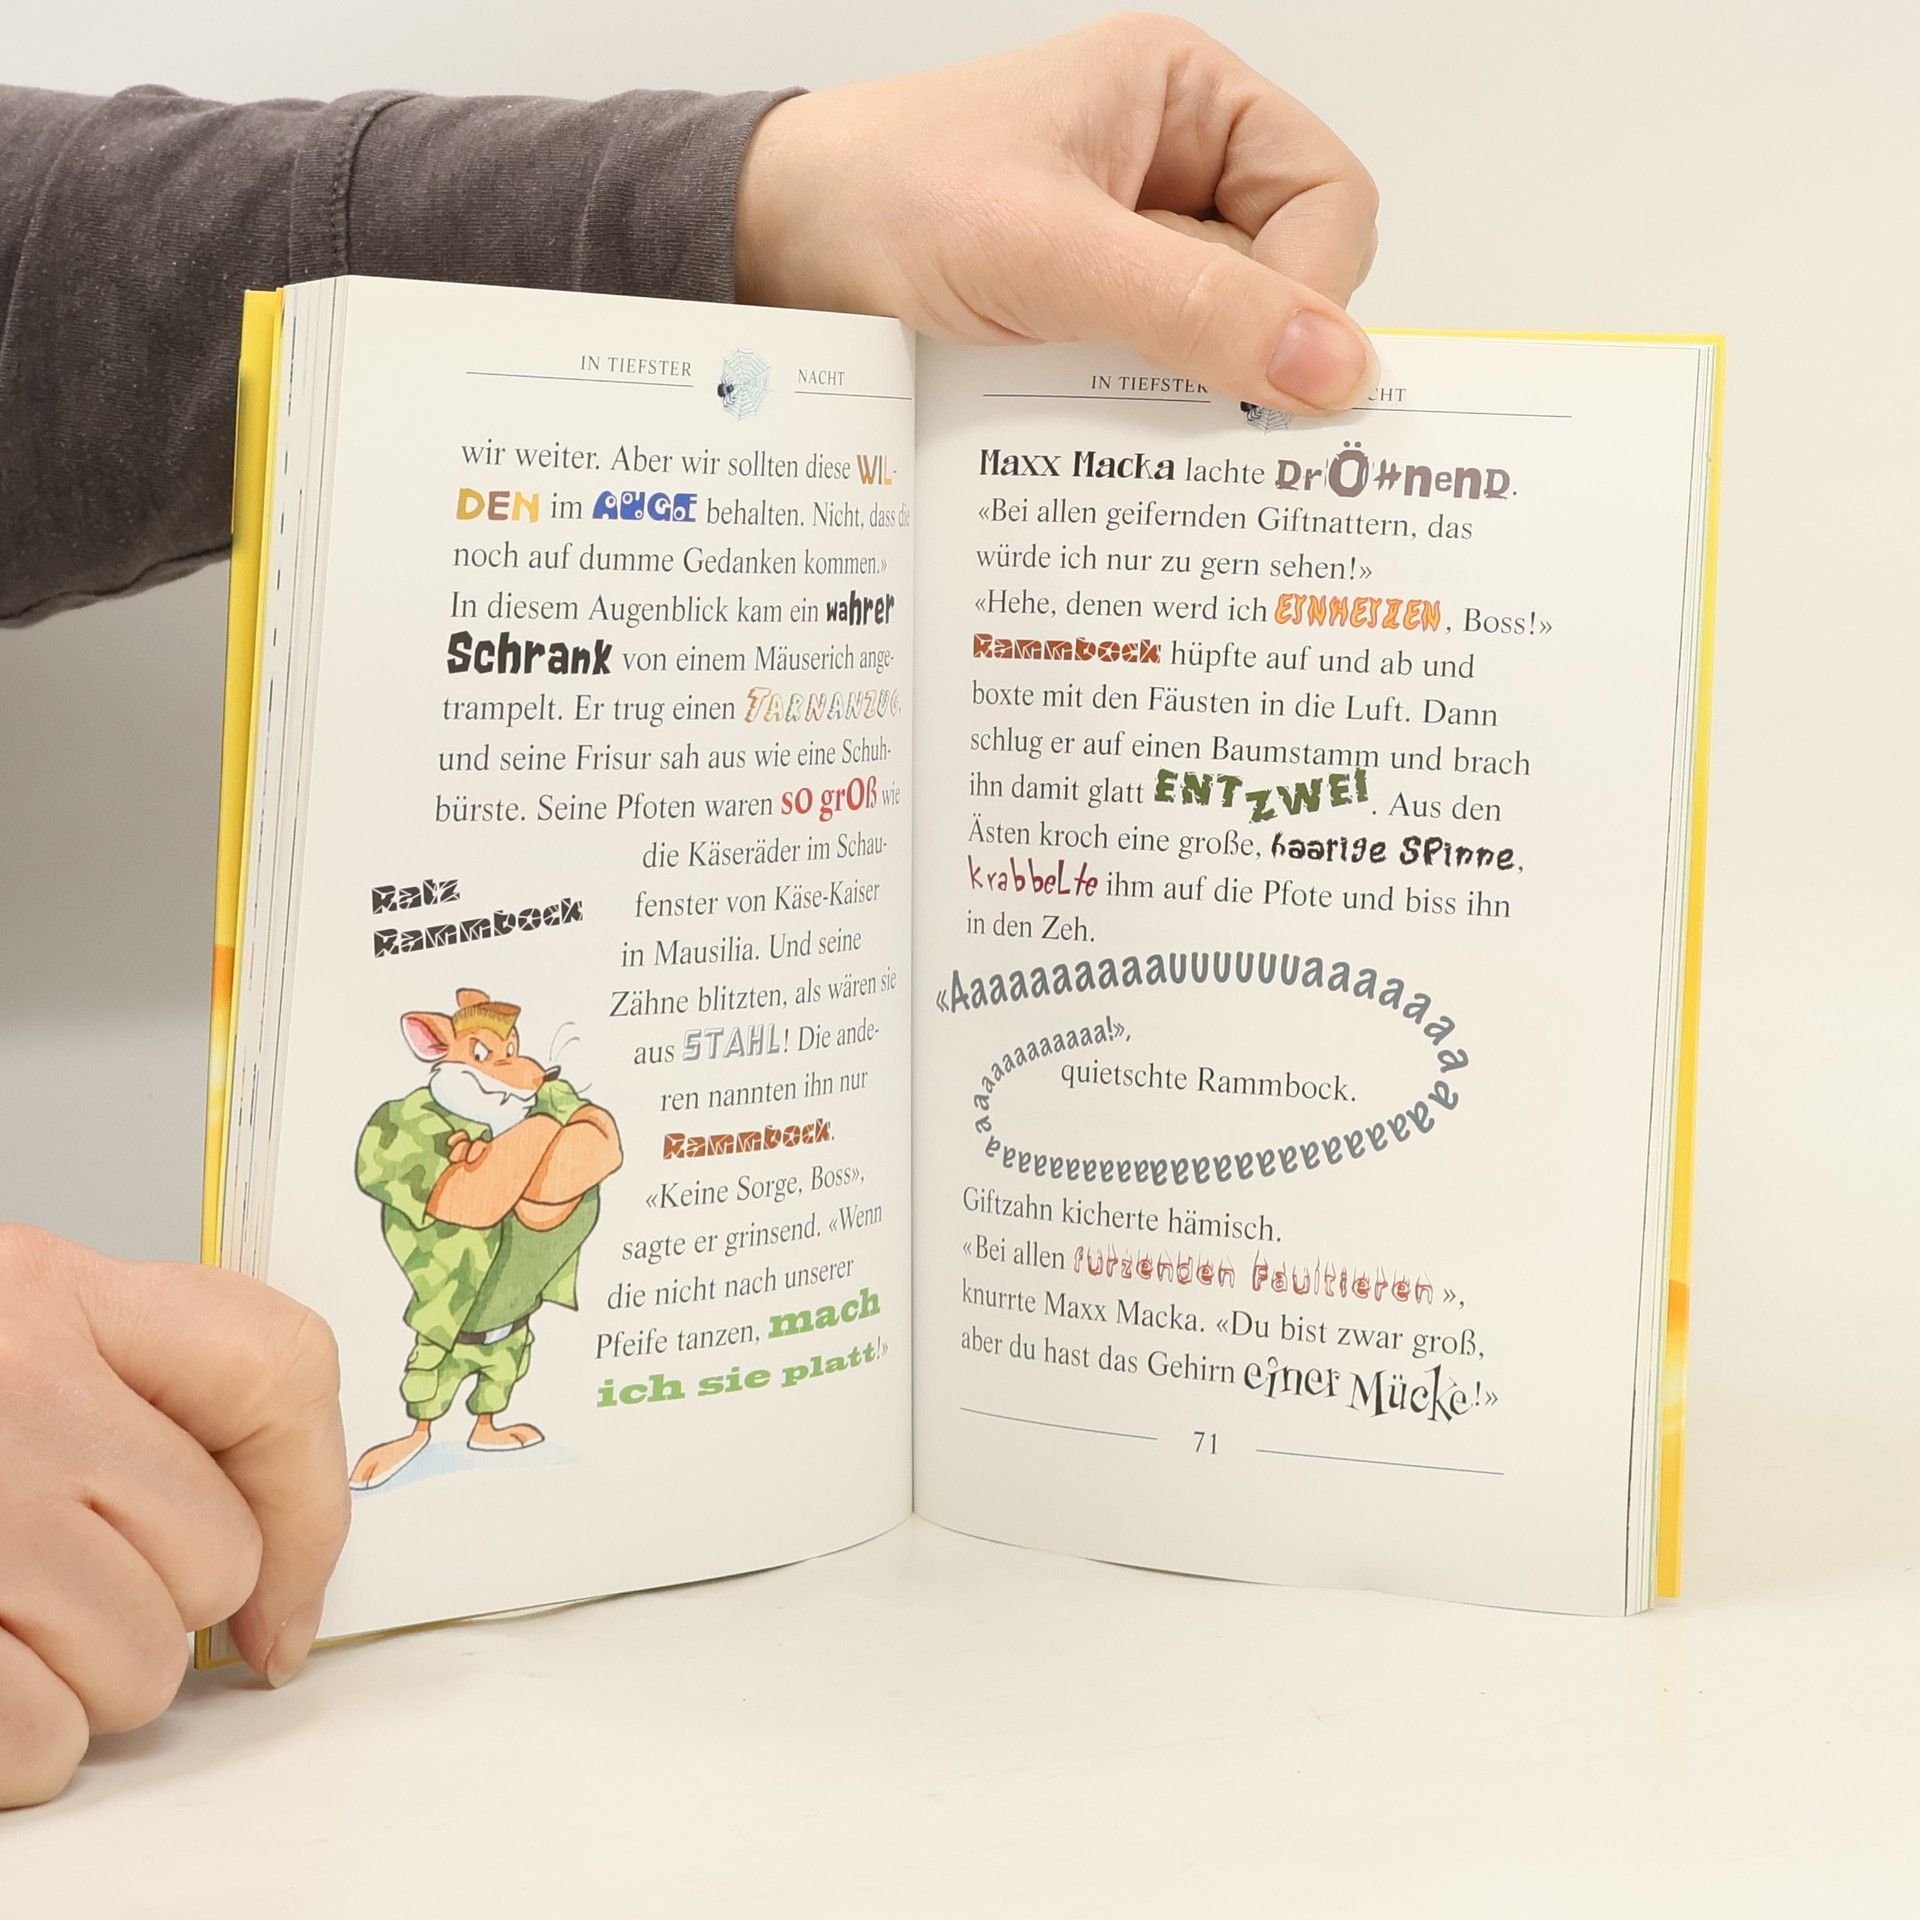 IN TIEFSTER NACHT
wir weiter. Aber wir sollten diese WIL-
DEN im AUGE behalten. Nicht, dass die
noch auf dumme Gedanken kommen.»
In diesem Augenblick kam ein wahrer
Schrank von einem Mäuserich ange-
trampelt. Er trug einen TARNANZUG,
und seine Frisur sah aus wie eine Schuh-
bürste. Seine Pfoten waren so groß wie
die Käseräder im Schau-
fenster von Käse-Kaiser
in Mausilia. Und seine
Zähne blitzten, als wären sie
aus STAHL! Die ande-
ren nannten ihn nur
Rammbock.
«Keine Sorge, Boss»,
sagte er grinsend. «Wenn
die nicht nach unserer
Pfeife tanzen, mach
ich sie platt!»
Ratz
Rammbock
IN TIEFSTER
Maxx Macka lachte DrÖHnenD.
«Bei allen geifernden Giftnattern, das
würde ich nur zu gern sehen!»
«Hehe, denen werd ich EINHEIZEN, Boss!»
Rammbock hüpfte auf und ab und
boxte mit den Fäusten in die Luft. Dann
schlug er auf einen Baumstamm und brach
ihn damit glatt ENTZWEI. Aus den
Ästen kroch eine große, haarige Spinne,
krabbelte ihm auf die Pfote und biss ihn
in den Zeh.
quietschte Rammbock.
Giftzahn kicherte hämisch.
«Bei allen furzenden Faultieren»,
knurrte Maxx Macka. «Du bist zwar groß,
aber du hast das Gehirn einer Mücke!»
71